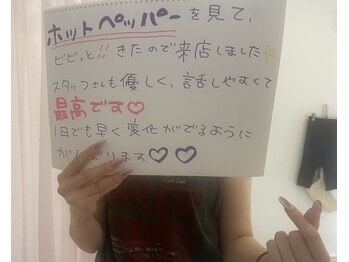 ホットペッパーを見て、
ビビっと!!きたので来店しました
スタッフさんも優しく、話しやすくて
最高です♡
1日でも早く変化がでるように
がんばります♡♡